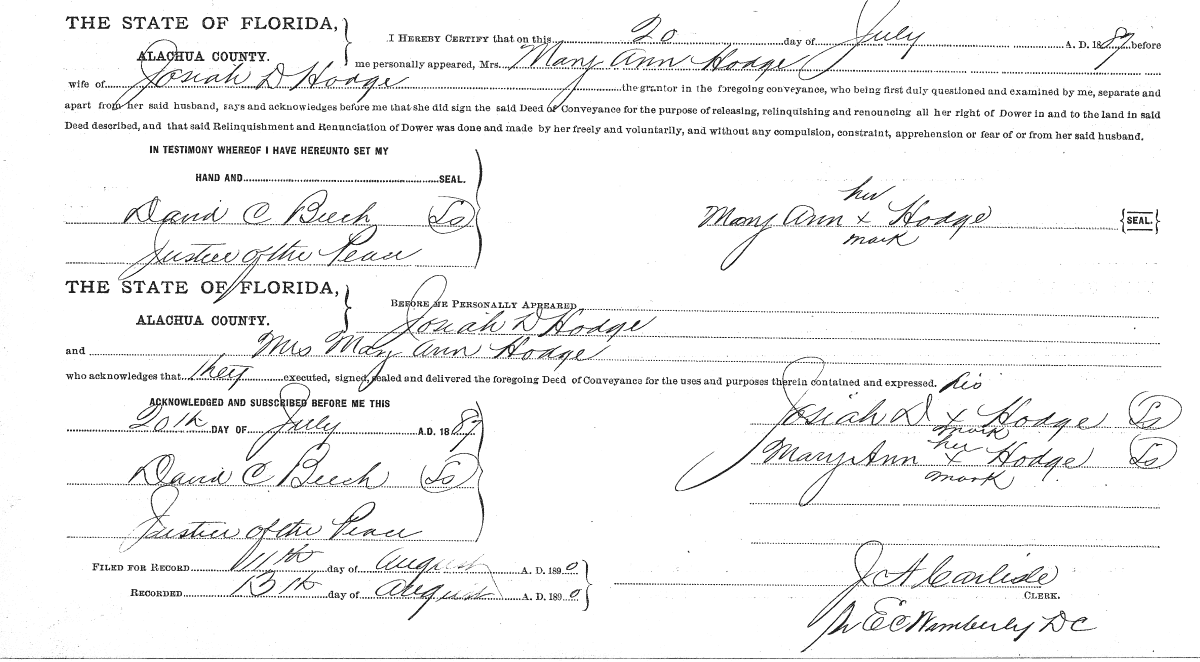 THE STATE OF FLORIDA,
ALACHUA COUNTY.
I HEREBY CERTIFY that on this 20 day of July A. D. 1887 before
me personally appeared, Mrs. Mary Ann Hodge
wife of Josiah D Hodge the grantor in the foregoing conveyance, who being first duly questioned and examined by me, separate and
apart from her said husband, says and acknowledges before me that she did sign the said Deed of Conveyance for the purpose of releasing, relinquishing and renouncing all her right of Dower in and to the land in said
Deed described, and that said Relinquishment and Renunciation of Dower was done and made by her freely and voluntarily, and without any compulsion, constraint, apprehension or fear of or from her said husband.
IN TESTIMONY WHEREOF I HAVE HEREUNTO SET MY
HAND AND SEAL.
David C Beech Ls
Justice of the Peace
her
Mary Ann x Hodge {SEAL.}
mark
THE STATE OF FLORIDA,
ALACHUA COUNTY.
BEFORE ME PERSONALLY APPEARED
Josiah D Hodge
and Mrs Mary Ann Hodge
who acknowledges that they executed, signed, sealed and delivered the foregoing Deed of Conveyance for the uses and purposes therein contained and expressed.
ACKNOWLEDGED AND SUBSCRIBED BEFORE ME THIS
20th DAY OF July A.D. 1887
David C Beech Ls
Justice of the Peace
his
Josiah D x Hodge Ls
mark
her
Mary Ann x Hodge Ls
mark
FILED FOR RECORD 11th day of August A. D. 1890
RECORDED 13th day of August A. D. 1890
J A Carlisle
CLERK.
E C Wamberly DC